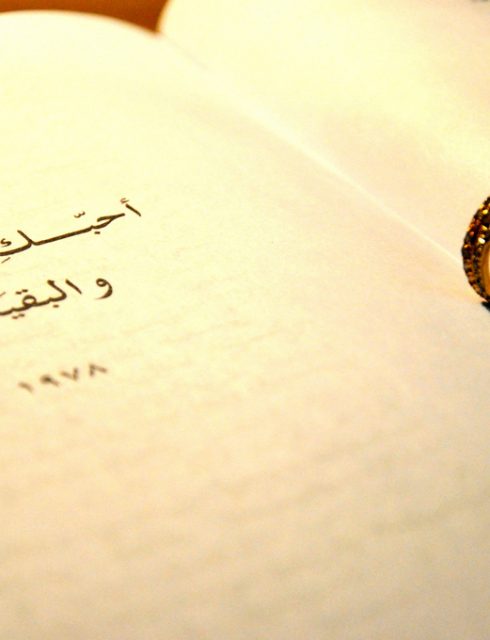 أحبّـــكِ
و البقيـ
١٩٧٨